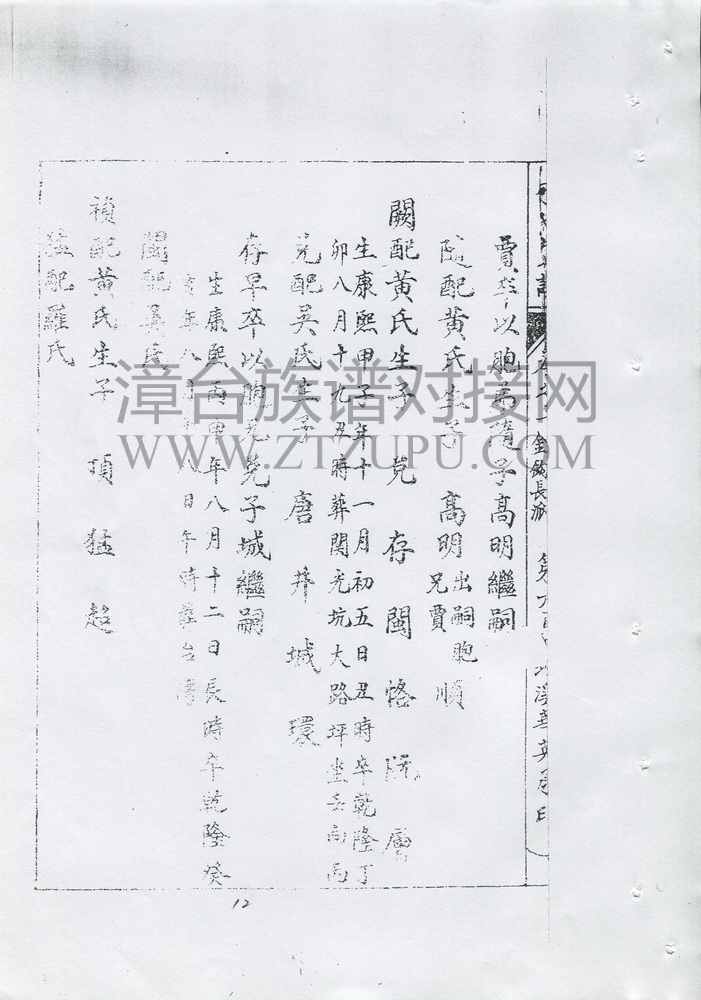 金鈎長派
賈卒以胞弟隨子高明繼嗣
隨配黃氏生子 高明出嗣胞兄賈 順
闕配黃氏生子 堯 存 閩 恪
生康熙甲子年十一月初五日丑時卒乾隆丁
卯八月十九丑時葬関光坑大路坪坐壬向丙
堯配吳氏生子 唐 井 城 環
存早卒以胞兄堯子城繼嗣
生康熙丙申年八月十二日長時卒乾隆癸
亥年八日午時葬台灣
閩配吳氏
禎配黃氏生子 項 猛 超
猛配羅氏
12
漳台族谱对接网
WWW.ZTZUPU.COM